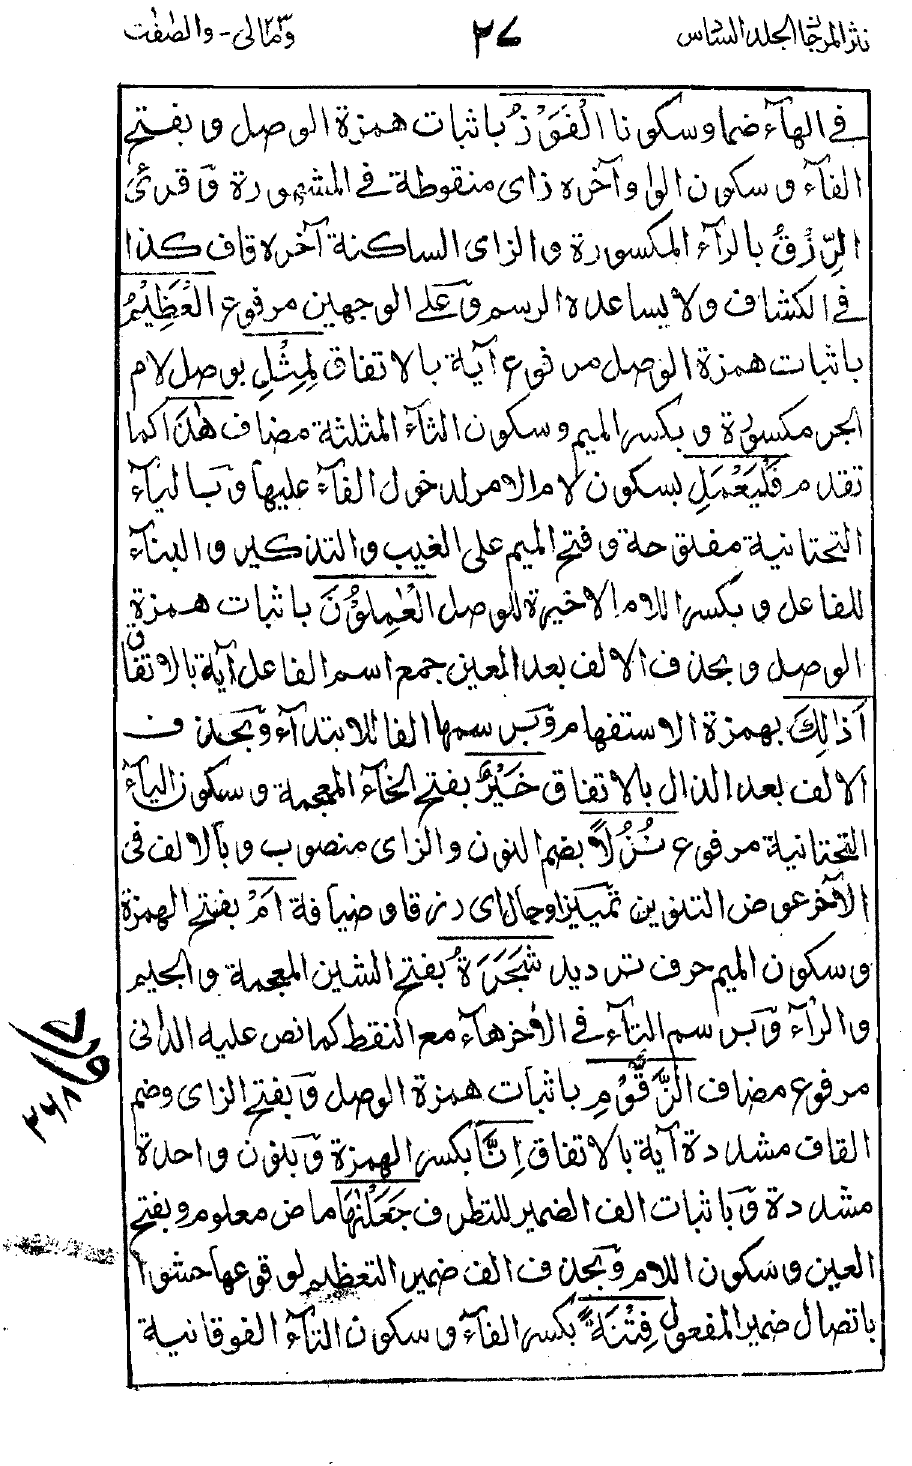 نثر المرجان الجلد السادس
٢٧
ومالى ٢٣ - والصّٰفّٰت
فى الهآء ضما وسكونا الْفَوْزُ باثبات همزة الوصل وبفتح
الفآء وسكون الواو آخره زاى منقوطة فى المشهورة وقرئ
الرِّزْقُ بالرآء المكسورة والزاى الساكنة آخره قاف كذا
فى الكشاف ولا يساعده الرسم وعلى الوجهين مرفوع الْعَظِيْمُ
باثبات همزة الوصل مرفوع آية بالاتفاق لِمِثْلِ بوصل لام
الجر مكسورة وبكسر الميم وسكون الثآء المثلثة مضاف هٰذَا كما
تقدم فَلْيَعْمَلِ بسكون لام الامر لدخول الفآء عليها وباليآء
التحتانية مفتوحة وفتح الميم على الغيب والتذكير والبنآء
للفاعل وبكسر اللام الاخيرة للوصل الْعٰمِلُوْنَ باثبات همزة
الوصل وبحذف الالف بعد العين جمع اسم الفاعل آية بالاتفاق
اَذٰلِكَ بهمزة الاستفهام وبرسمها الفا للابتدآء وبحذف
الالف بعد الذال بالاتفاق خَيْرٌ بفتح الخآء المعجمة وسكون اليآء
التحتانية مرفوع نُزُلًا بضم النون والزاى منصوب وبالالف فى
الآخر عوض التنوين تمييز او حال اى رزقا وضيافة اَمْ بفتح الهمزة
وسكون الميم حرف ترديد شَجَرَةُ بفتح الشين المعجمة والجيم
والرآء وبرسم التآء فى الآخر هآء مع النقط كما نص عليه الدانى
مرفوع مضاف الزَّقُّوْمِ باثبات همزة الوصل وبفتح الزاى وضم
القاف مشددة آية بالاتفاق اِنَّا بكسر الهمزة وبنون واحدة
مشددة وباثبات الف الضمير للتطرف جَعَلْنٰهَا ماض معلوم وبفتح
العين وسكون اللام وبحذف الف ضمير التعظيم لوقوعها حشوا
باتصال ضمير المفعول فِتْنَةً بكسر الفآء وسكون التآء الفوقانية